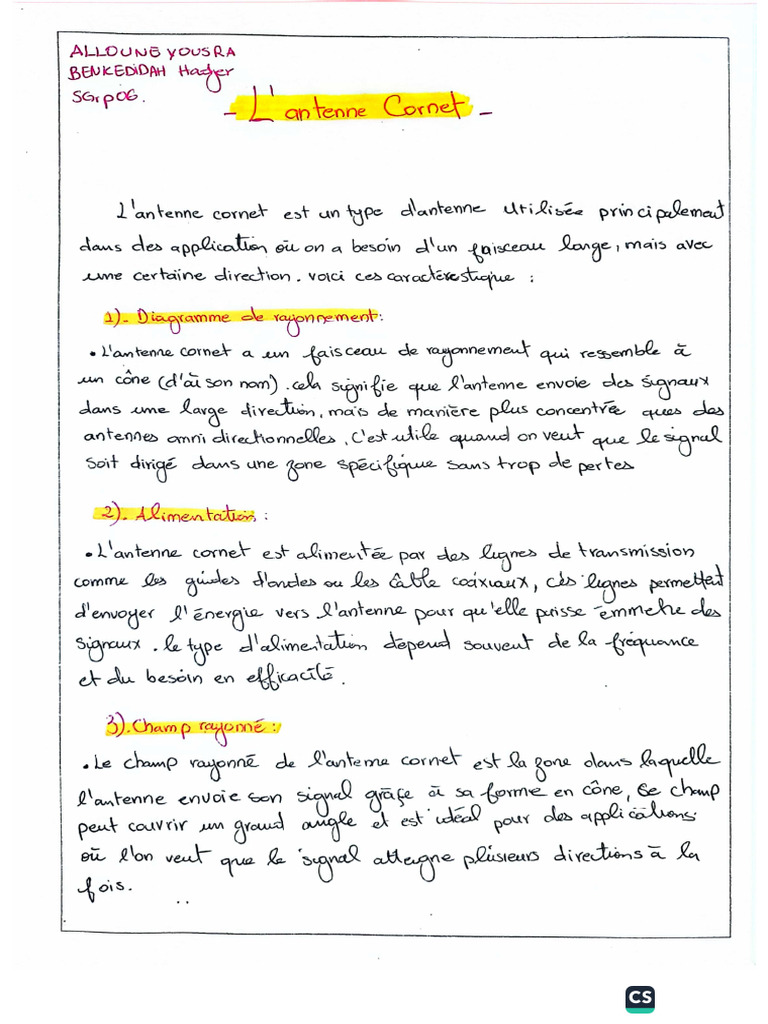 ALLOUNE YOUSRA
BENKEDIDAH Hadjer
SGrp06.
- L'antenne Cornet -
L'antenne cornet est un type d'antenne utilisée principalement
dans des application où on a besoin d'un faisceau large, mais avec
une certaine direction. voici ces caractérestique :
1)- Diagramme de rayonnement:
• L'antenne cornet a un faisceau de rayonnement qui ressemble à
un cône (d'où son nom). cela signifie que l'antenne envoie des signaux
dans une large direction, mais de manière plus concentrée ques des
antennes omni directionnelles, C'est utile quand on veut que le signal
soit dirigé dans une zone spécifique sans trop de pertes
2). Alimentation :
• L'antenne cornet est alimentée par des lignes de transmission
comme les guides d'ondes ou les câble coaxiaux, ces lignes permettent
d'envoyer l'énergie vers l'antenne pour qu'elle puisse emmetre des
signaux. le type d'alimentation dépend souvent de la fréquance
et du besoin en efficacité.
3). Champ rayonné :
• Le champ rayonné de l'antenne cornet est la zone dans laquelle
l'antenne envoie son signal grâçe à sa forme en cône, ce champ
peut couvrir un grand angle et est idéal pour des applications
où l'on veut que le signal atteigne plusieurs directions à la
fois.
CS